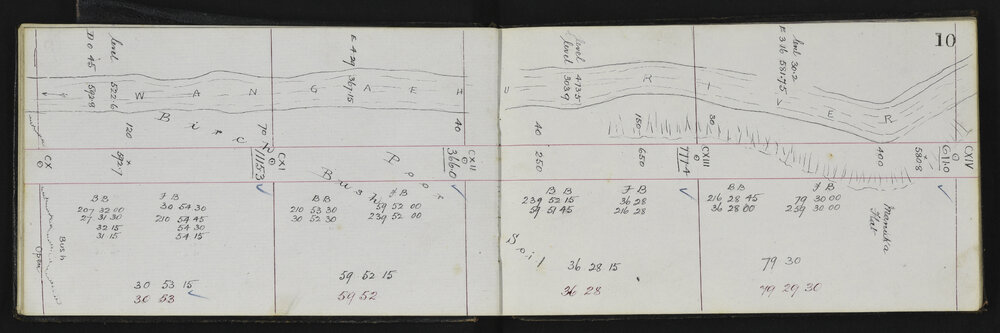 10
level
D 0 45
522.6
592.8
E 4.29
369.15
level 473.5
level 303.9
level 30.2
E 3 16 581.75
W A N G A E H U R I V E R
120
Birch
70
40
40
150
30
CX
592.7
CXI
1115.3
Bush
Poor
CXII
366.0
250
650
CXIII
711.4
400
580.8
CXIV
611.0
B B
207 32 00
27 31 30
32 15
31 15
F B
30 54 30
210 54 45
54 30
54 15
B B
210 53 30
30 52 30
F B
59 52 00
239 52 00
B B
239 52 15
59 51 45
F B
36 28
216 28
B B
216 28 45
36 28 00
F B
79 30 00
259 30 00
Manuka
Flat
Bush
Open
Soil
30 53 15
30 53
59 52 15
59 52
36 28 15
36 28
79 30
79 29 30